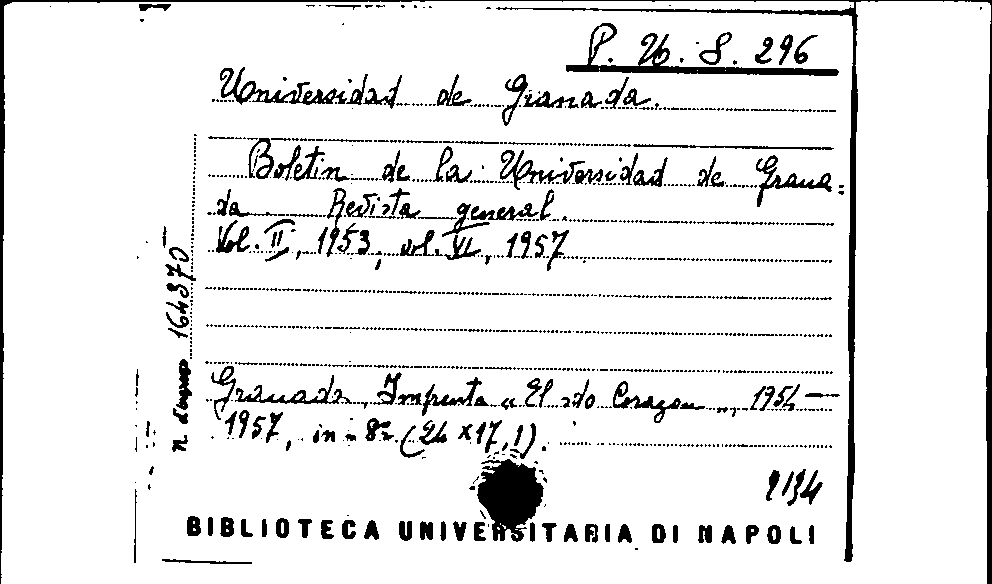 P. U. S. 296
Universidad de Granada.
Boletin de la Universidad de Grana=
da Revista general.
Vol. II, 1953, vol. VI, 1957
N. d'ingresso 164370
Granada, Imprenta "El do Corazon", 1954 —
1957, in-8º (24 x 17,1).
2134
BIBLIOTECA UNIVERSITARIA DI NAPOLI